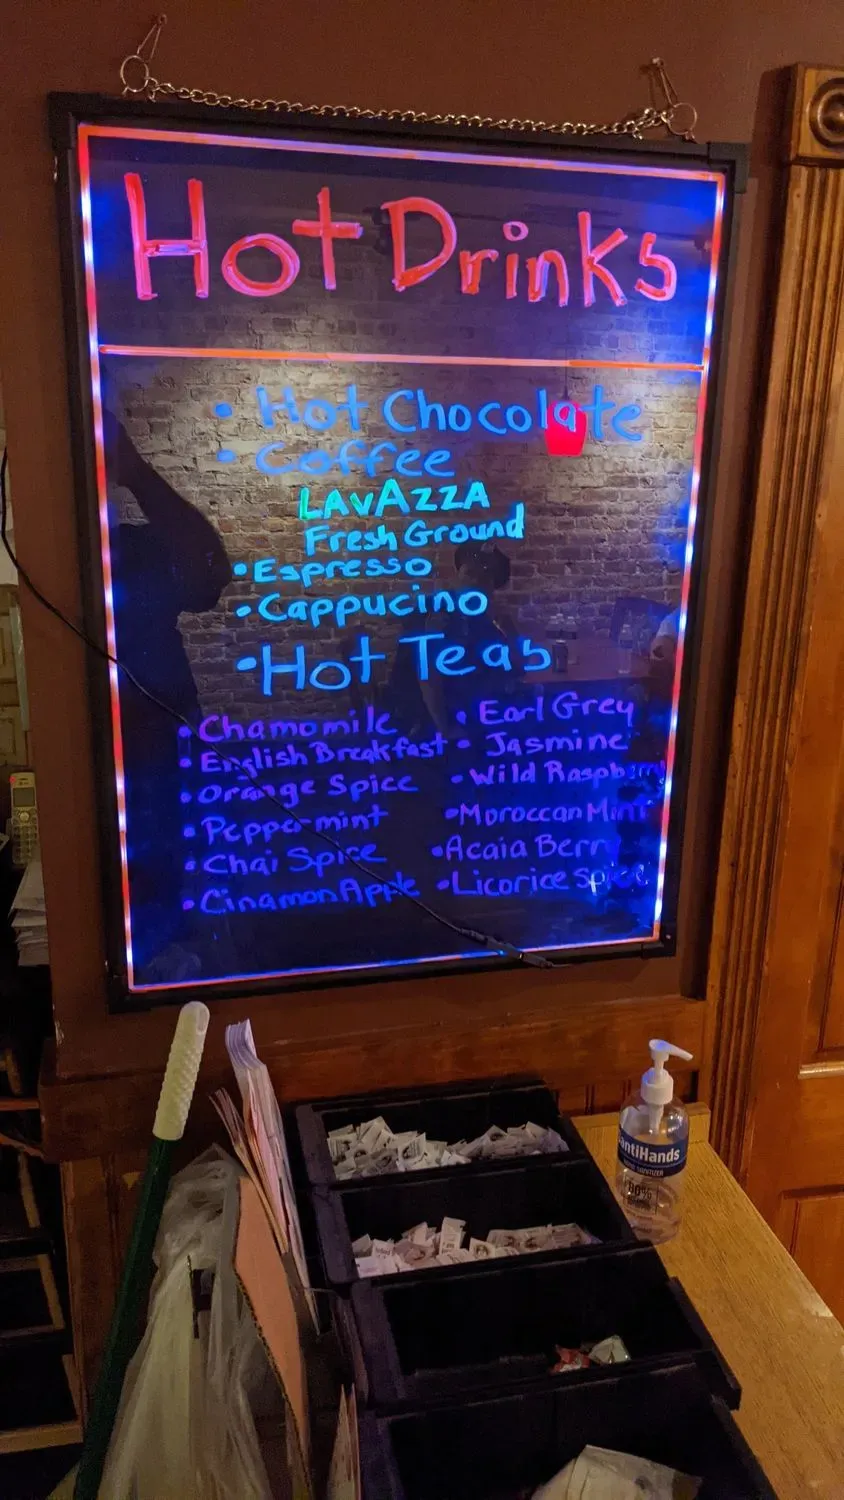 Hot Drinks
• Hot Chocolate
• Coffee
LAVAZZA
Fresh Ground
• Espresso
• Cappucino
• Hot Teas
• Chamomile
• English Breakfast
• Orange Spice
• Peppermint
• Chai Spice
• Cinamon Apple
• Earl Grey
• Jasmine
• Wild Raspberry
• Moroccan Mint
• Acaia Berry
• Licorice Spice
SantiHands
HAND SANITIZER
80%